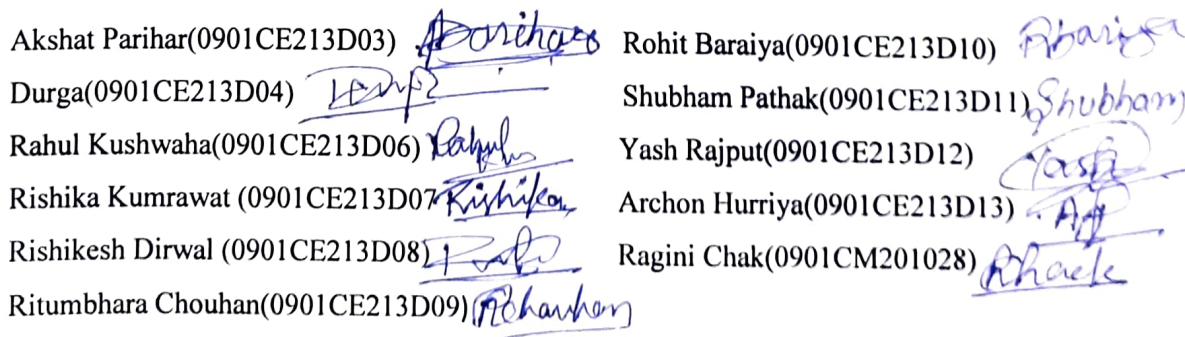 Akshat Parihar(0901CE213D03) AParihar
Durga(0901CE213D04)
Rahul Kushwaha(0901CE213D06) Rahul
Rishika Kumrawat (0901CE213D07 Rishika
Rishikesh Dirwal (0901CE213D08)
Ritumbhara Chouhan(0901CE213D09) RChauhan
Rohit Baraiya(0901CE213D10) RBaraiya
Shubham Pathak(0901CE213D11) Shubham
Yash Rajput(0901CE213D12) Yash
Archon Hurriya(0901CE213D13)
Ragini Chak(0901CM201028) RChack